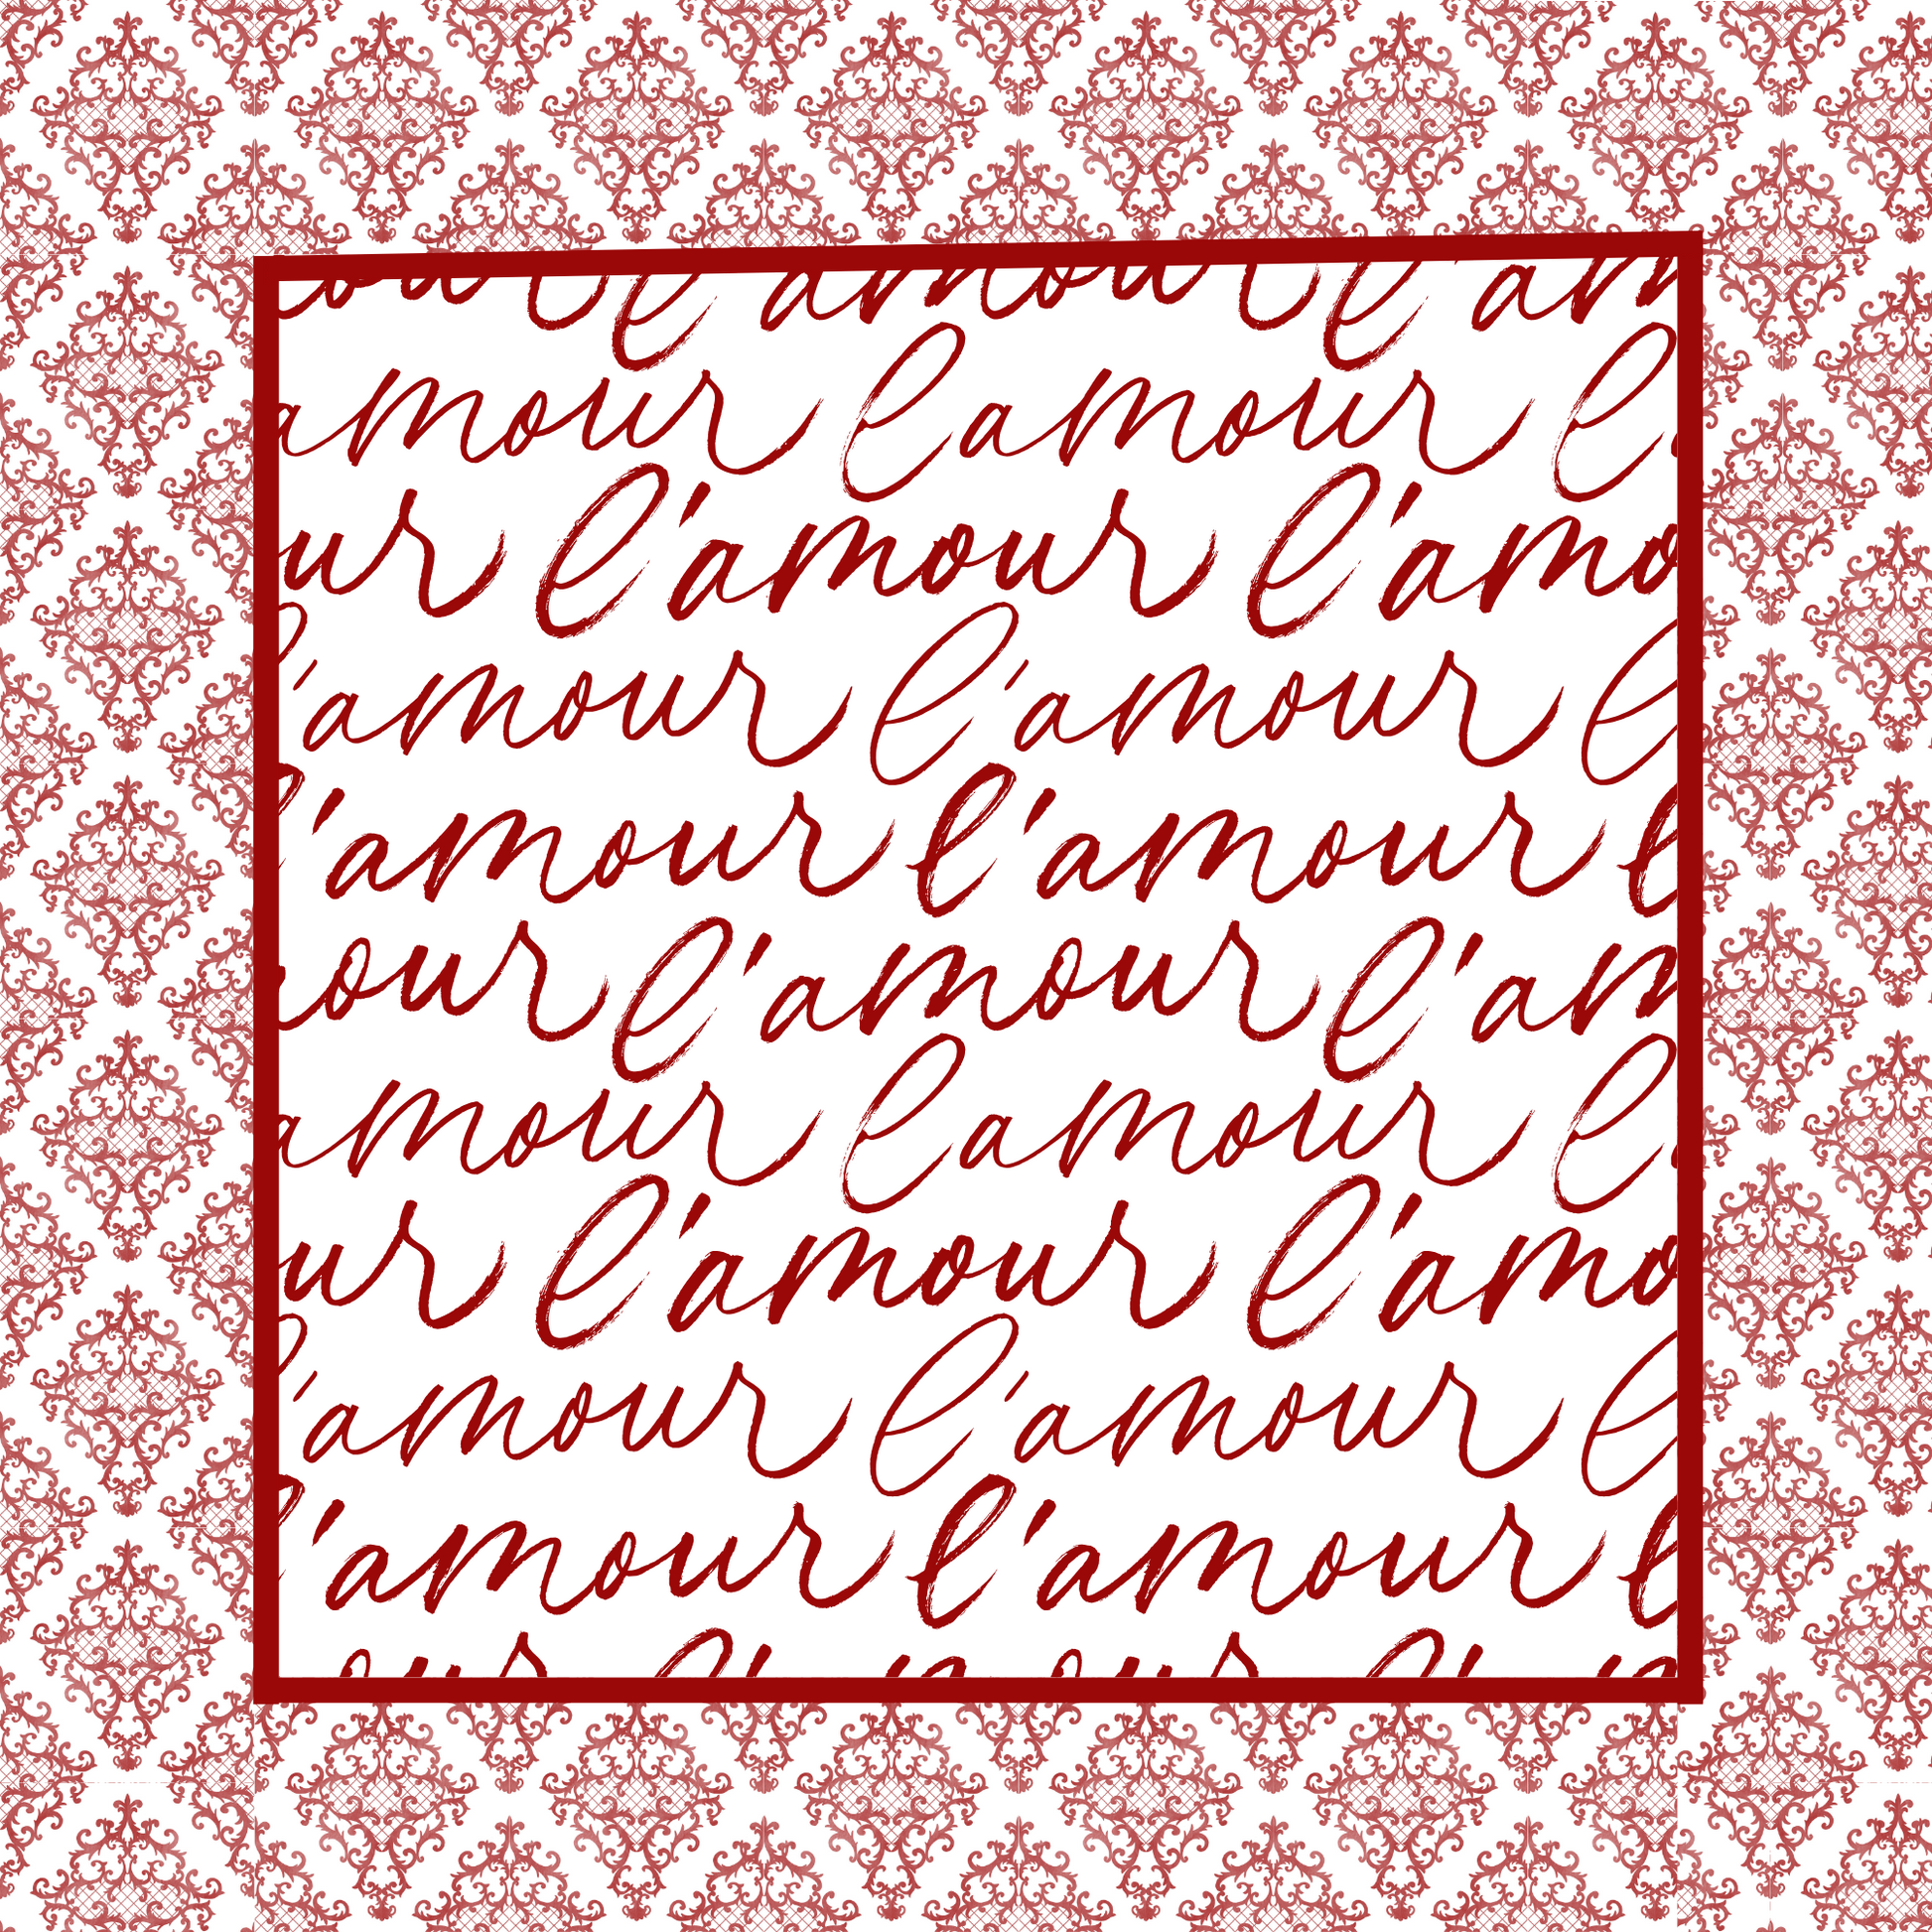 our l'amour l'am
amour lamour l
ur l'amour l'amo
l'amour l'amour l
l'amour l'amour l
our l'amour l'am
amour lamour l
ur l'amour l'amo
l'amour l'amour l
l'amour l'amour l
our l'amour l'am